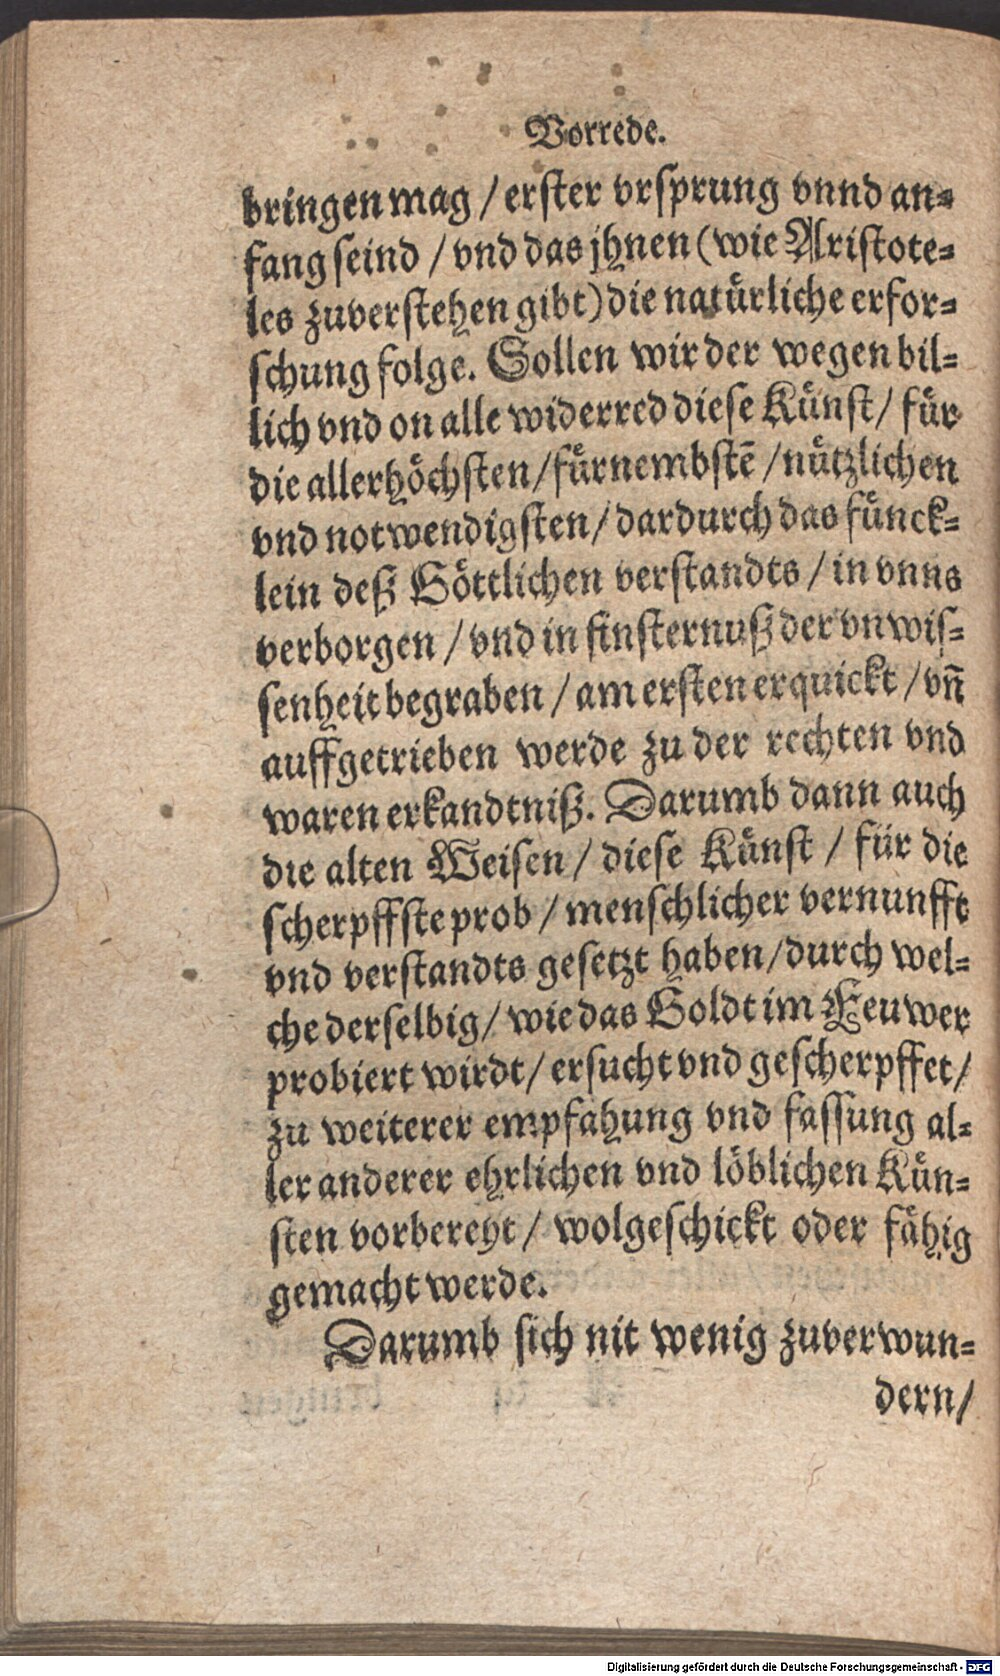 Vorrede.
bringen mag / erster vrsprung vnnd an=
fang seind / vnd das jhnen (wie Aristote=
les zuverstehen gibt) die natürliche erfor=
schung folge. Sollen wir der wegen bil=
lich vnd on alle widerred diese Künst / für
die allerhöchsten / fürnembstē / nützlichen
vnd notwendigsten / dardurch das fünck=
lein deß Göttlichen verstandts / in vnns
verborgen / vnd in finsternuß der vnwis=
senheit begraben / am ersten erquickt / vñ
auffgetrieben werde zu der rechten vnd
waren erkandtniß. Darumb dann auch
die alten Weisen / diese Künst / für die
scherpffste prob / menschlicher vernunfft
vnd verstandts gesetzt haben / durch wel=
che derselbig / wie das Goldt im Feuwer
probiert wirdt / ersucht vnd gescherpffet /
zu weiterer empfahung vnd fassung al=
ler anderer ehrlichen vnd löblichen Kün=
sten vorbereyt / wolgeschickt oder fähig
gemacht werde.
Darumb sich nit wenig zuverwun=
dern /
Digitalisierung gefördert durch die Deutsche Forschungsgemeinschaft - DFG